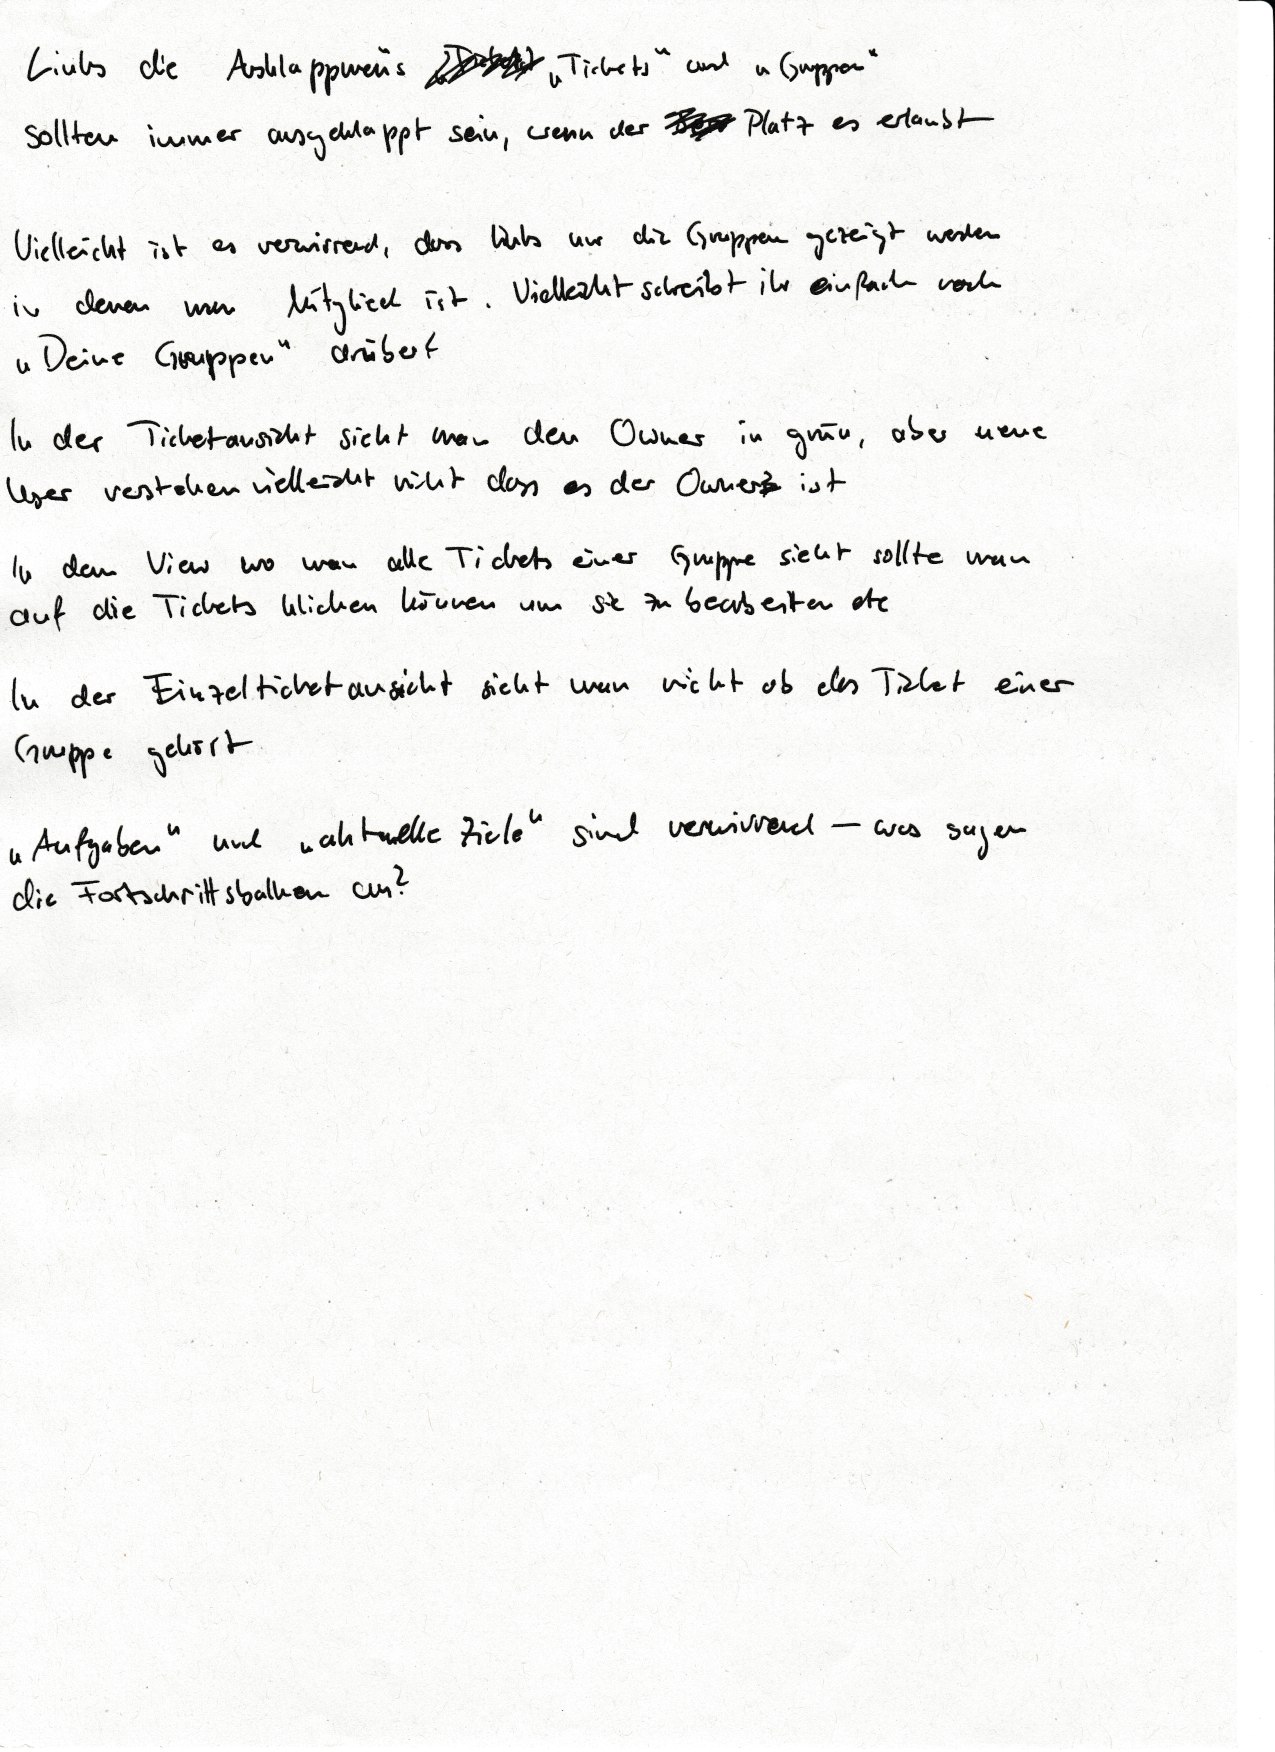 Links die Ausklappmenüs „Tickets“ und „Gruppen“
sollten immer ausgeklappt sein, wenn der Platz es erlaubt
Vielleicht ist es verwirrend, dass links nur die Gruppen gezeigt werden
in denen man Mitglied ist. Vielleicht schreibt ihr einfach noch
„Deine Gruppen“ drüber?
In der Ticketansicht sieht man den Owner in grün, aber neue
User verstehen vielleicht nicht dass es der Owner ist
In dem View wo man alle Tickets einer Gruppe sieht sollte man
auf die Tickets klicken können um sie zu bearbeiten etc
In der Einzelticketansicht sieht man nicht ob das Ticket einer
Gruppe gehört
„Aufgaben“ und „aktuelle Ziele“ sind verwirrend – was sagen
die Fortschrittsbalken aus?